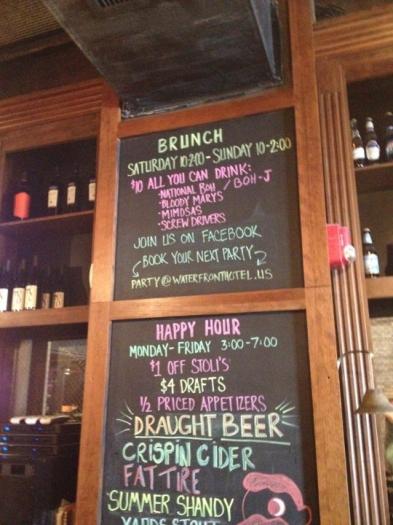 BRUNCH
SATURDAY 10-2:00 - SUNDAY 10-2:00
$10 ALL YOU CAN DRINK:
-NATIONAL BOH / BOH-J
-BLOODY MARYS
-MIMOSAS
-SCREW DRIVERS
JOIN US ON FACEBOOK
BOOK YOUR NEXT PARTY
PARTY@WATERFRONTHOTEL.US
HAPPY HOUR
MONDAY-FRIDAY 3:00-7:00
$1 OFF STOLI'S
$4 DRAFTS
1/2 PRICED APPETIZERS
DRAUGHT BEER
CRISPIN CIDER
FAT TIRE
SUMMER SHANDY
YARDS STOUT